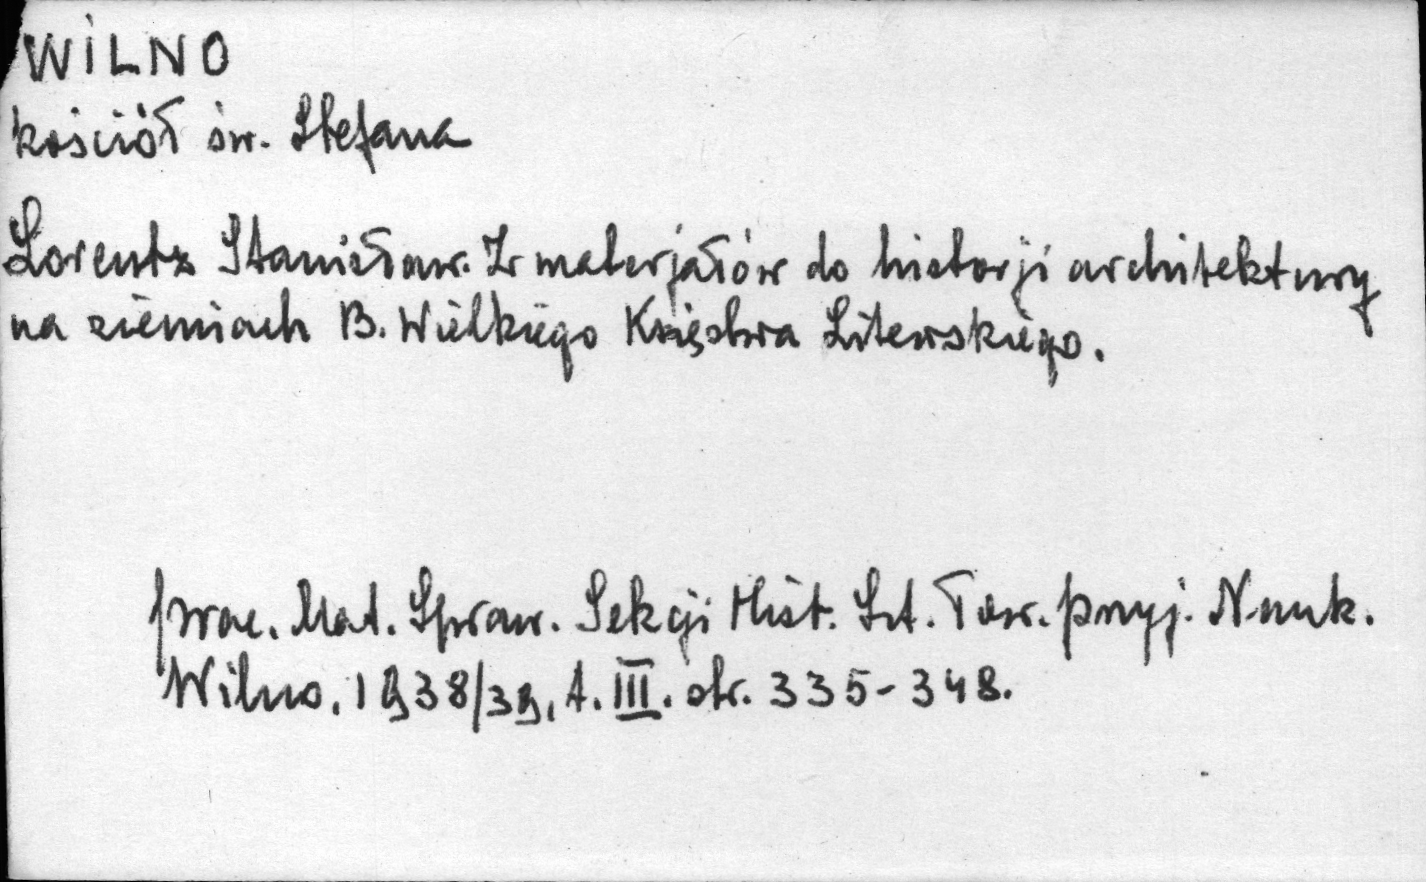 WILNO
kościół św. Stefana
Lorentz Stanisław. Z materjałów do historji architektury
na ziemiach B. Wielkiego Księstwa Litewskiego.
Prac. Mat. Spraw. Sekcji Hist. Szt. Tow. Przyj. Nauk.
Wilno, 1938/39, t. III. str. 335-348.